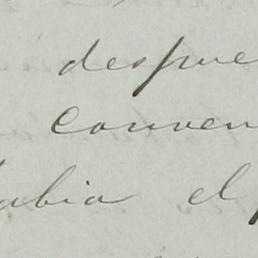 despue
conven
labia el